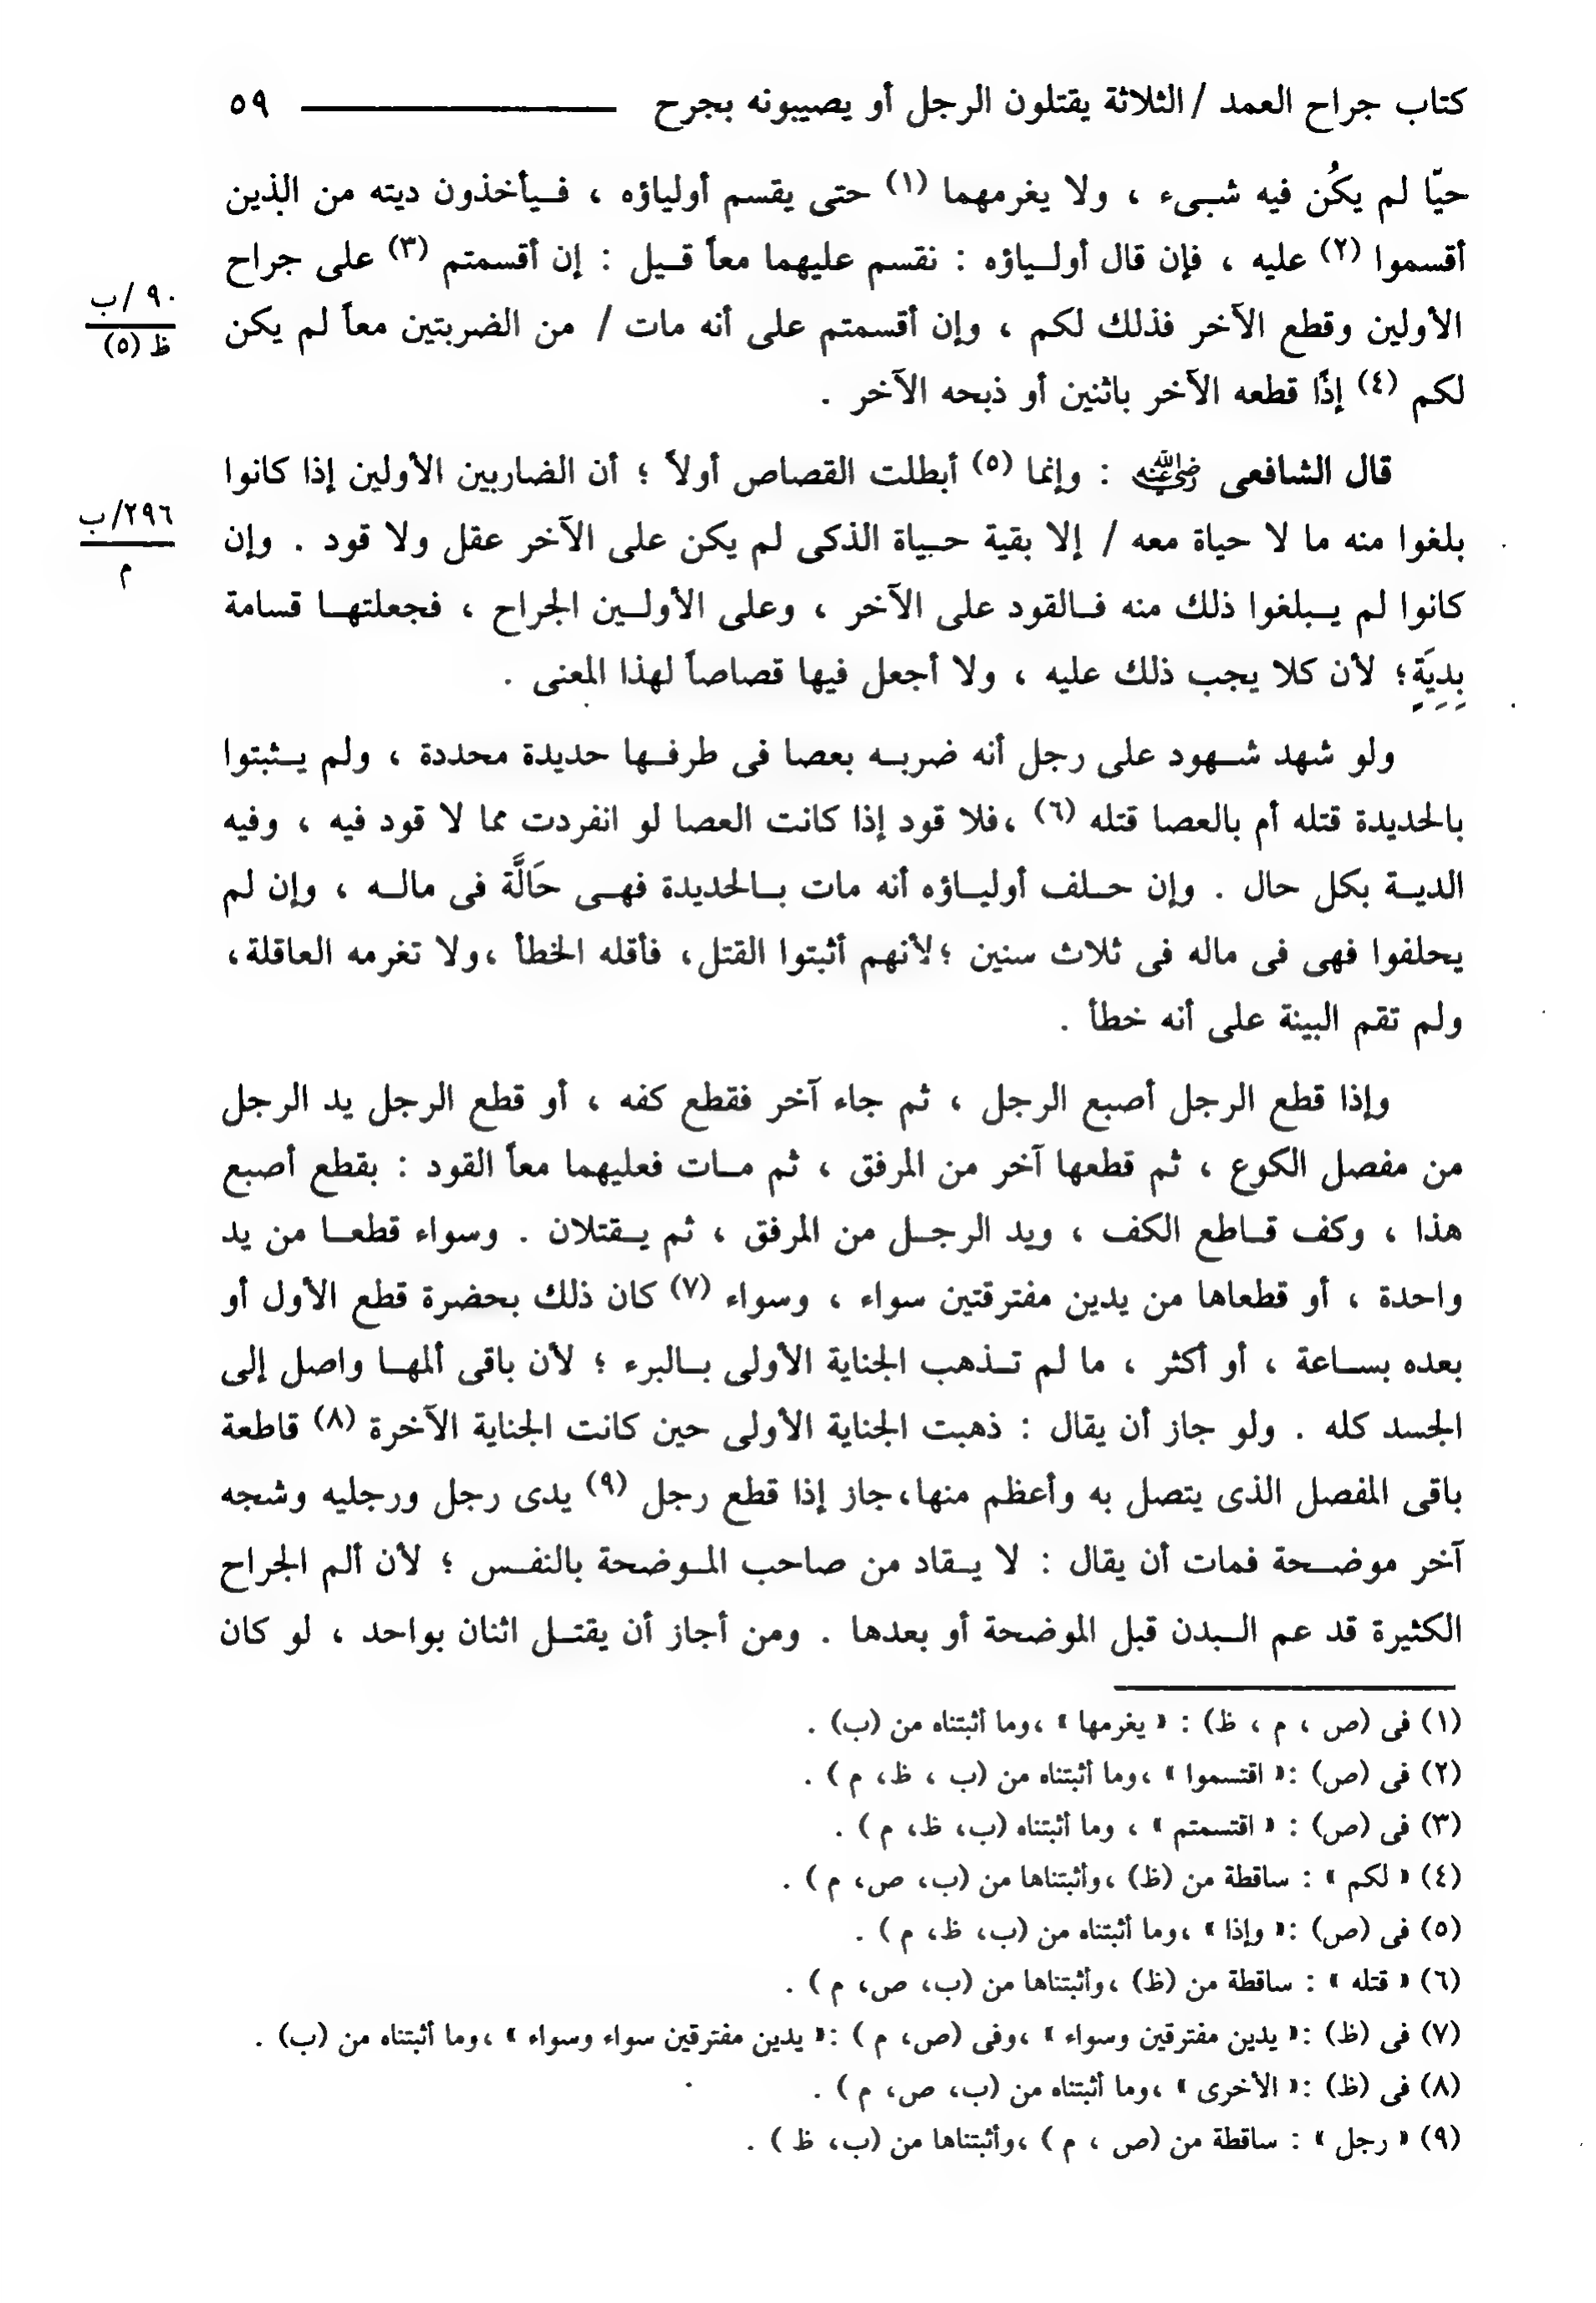 كتاب جراح العمد / الثلاثة يقتلون الرجل أو يصيبونه بجرح ٥٩
حيّا لم يكُن فيه شىء ، ولا يغرمهما (١) حتى يقسم أولياؤه ، فيأخذون ديته من الذين
أقسموا (٢) عليه ، فإن قال أولياؤه : نقسم عليهما معاً قيل : إن أقسمتم (٣) على جراح
٩٠/ب
ظ (٥)
الأولين وقطع الآخر فذلك لكم ، وإن أقسمتم على أنه مات / من الضربتين معاً لم يكن
لكم (٤) إذًا قطعه الآخر باثنين أو ذبحه الآخر .
قال الشافعى رضي الله عنه : وإنما (٥) أبطلت القصاص أولاً ؛ أن الضاربين الأولين إذا كانوا
٢٩٦/ب
م
بلغوا منه ما لا حياة معه / إلا بقية حياة الذكى لم يكن على الآخر عقل ولا قود . وإن
كانوا لم يبلغوا ذلك منه فالقود على الآخر ، وعلى الأولين الجراح ، فجعلتها قسامة
بِدِيَةٍ؛ لأن كلا يجب ذلك عليه ، ولا أجعل فيها قصاصاً لهذا المعنى .
ولو شهد شهود على رجل أنه ضربه بعصا فى طرفها حديدة محددة ، ولم يثبتوا
بالحديدة قتله أم بالعصا قتله (٦) ،فلا قود إذا كانت العصا لو انفردت مما لا قود فيه ، وفيه
الدية بكل حال . وإن حلف أولياؤه أنه مات بالحديدة فهى حَالَّة فى ماله ، وإن لم
يحلفوا فهى فى ماله فى ثلاث سنين ؛لأنهم أثبتوا القتل، فأقله الخطأ ،ولا تغرمه العاقلة،
ولم تقم البينة على أنه خطأ .
وإذا قطع الرجل أصبع الرجل ، ثم جاء آخر فقطع كفه ، أو قطع الرجل يد الرجل
من مفصل الكوع ، ثم قطعها آخر من المرفق ، ثم مات فعليهما معاً القود : بقطع أصبع
هذا ، وكف قاطع الكف ، ويد الرجل من المرفق ، ثم يقتلان . وسواء قطعا من يد
واحدة ، أو قطعاها من يدين مفترقتين سواء ، وسواء (٧) كان ذلك بحضرة قطع الأول أو
بعده بساعة ، أو أكثر ، ما لم تذهب الجناية الأولى بالبرء ؛ لأن باقى ألمها واصل إلى
الجسد كله . ولو جاز أن يقال : ذهبت الجناية الأولى حين كانت الجناية الآخرة (٨) قاطعة
باقى المفصل الذى يتصل به وأعظم منها،جاز إذا قطع رجل (٩) يدى رجل ورجليه وشجه
آخر موضحة فمات أن يقال : لا يقاد من صاحب الموضحة بالنفس ؛ لأن ألم الجراح
الكثيرة قد عم البدن قبل الموضحة أو بعدها . ومن أجاز أن يقتل اثنان بواحد ، لو كان
(١) فى (ص ، م ، ظ) : « يغرمها » ،وما أثبتناه من (ب) .
(٢) فى (ص) :« اقتسموا » ،وما أثبتناه من (ب ، ظ، م ) .
(٣) فى (ص) : « اقتسمتم » ، وما أثبتناه (ب، ظ، م ) .
(٤) « لكم » : ساقطة من (ظ) ،وأثبتناها من (ب، ص، م ) .
(٥) فى (ص) :« وإذا » ،وما أثبتناه من (ب، ظ، م ) .
(٦) « قتله » : ساقطة من (ظ) ،وأثبتناها من (ب، ص، م ) .
(٧) فى (ظ) :« يدين مفترقين وسواء » ،وفى (ص، م ) :« يدين مفترقين سواء وسواء » ،وما أثبتناه من (ب) .
(٨) فى (ظ) :« الأخرى » ،وما أثبتناه من (ب، ص، م ) .
(٩) « رجل » : ساقطة من (ص ، م ) ،وأثبتناها من (ب، ظ ) .